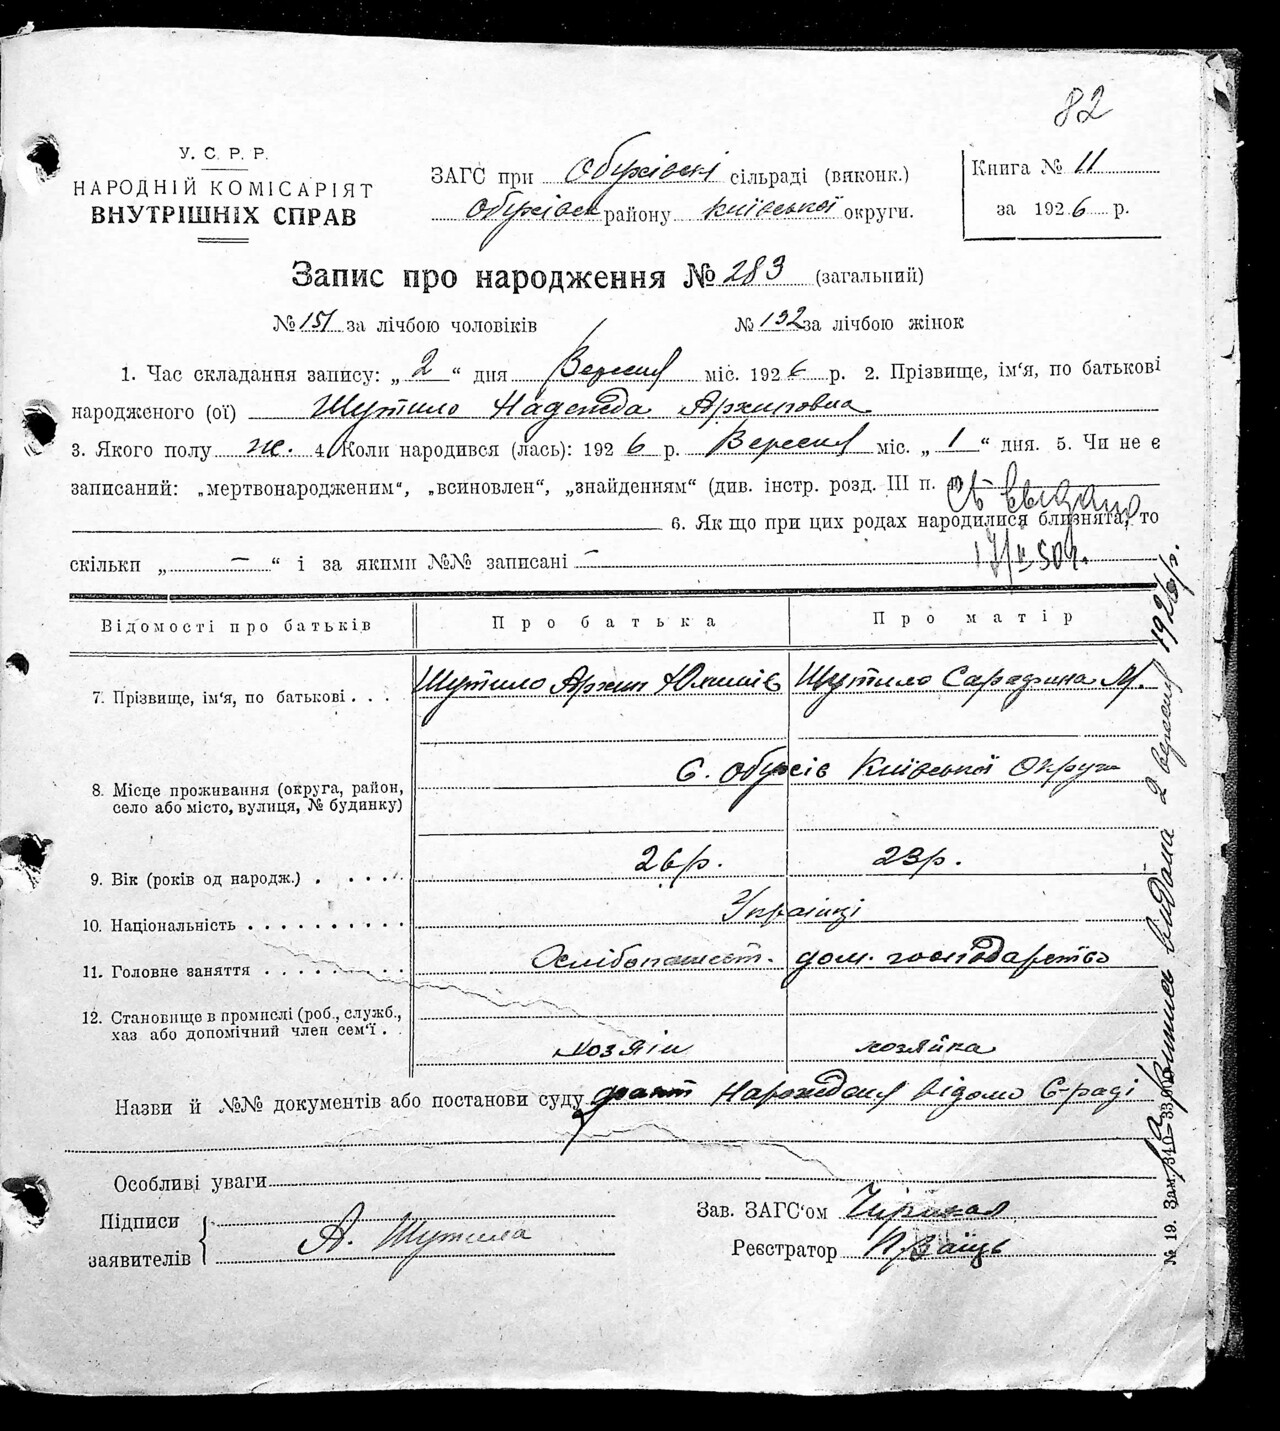 82
У. С. Р. Р.
НАРОДНІЙ КОМІСАРІЯТ
ВНУТРІШНІХ СПРАВ
ЗАГС при Обухівскі сільраді (виконк.)
Обухівск району Київської округи.
Книга № 11
за 1926 р.
Запис про народження № 283 (загальний)
№ 151 за лічбою чоловіків № 132 за лічбою жінок
1. Час складання запису: „ 2 “ дня Вересня міс. 1926 р. 2. Прізвище, ім‘я, по батькові
народженого (ої) Шутило Надежда Архиповна
3. Якого полу ж. 4. Коли народився (лась): 1926 р. Вересня міс. „ 1 “ дня. 5. Чи не є
записаний: „мертвонародженим“, „всиновлен“, „знайденням“ (див. інстр. розд. III п.
6. Як що при цих родах народилися близнята, то
скільки „ — “ і за якими №№ записані —
Відомості про батьків Про батька Про матір
7. Прізвище, ім‘я, по батькові . . . . Шутило Архип Шутило М.
8. Місце проживання (округа, район,
село або місто, вулиця, № будинку)
С. Обухів Київської Округи
9. Вік (років од народж.) . . . . . 26 р. 23 р.
10. Національність . . . . . . . . . . Українці
11. Головне заняття . . . . . . . . . дом. господарство
12. Становище в промислі (роб., служб.,
хаз або допомічний член сем‘ї . .
хозяін хозяйка
Назви й №№ документів або постанови суду факт Народженя відомо С-раді
Особливі уваги
Підписи
заявителів
А. Шутила
Зав. ЗАГС‘ом
Реєстратор
Св выдано
17/II 50 г.
выпись видана 2 вересня 1926 р.
№ 19. Зам.